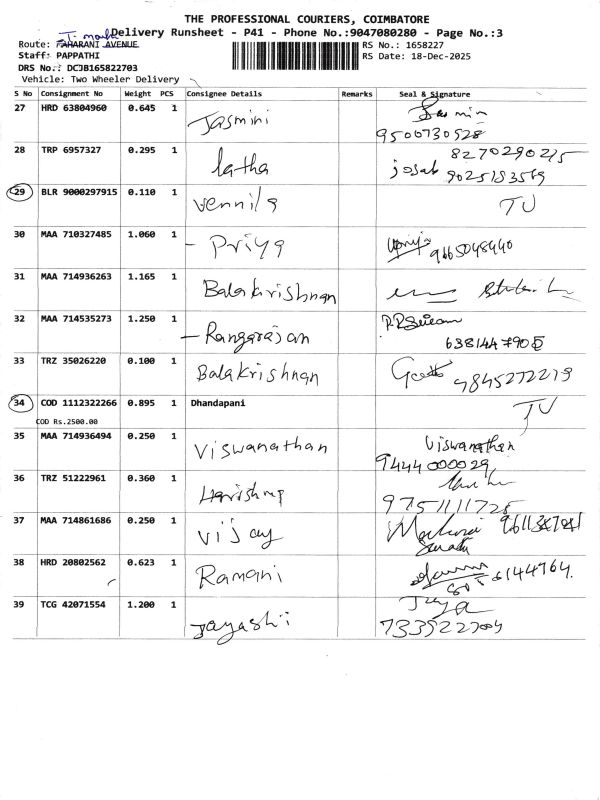 THE PROFESSIONAL COURIERS, COIMBATORE
Delivery Runsheet - P41 - Phone No.:9047080280 - Page No.:3
Route: MAHARANI AVENUE
RS No.: 1658227
Staff: PAPPATHI
RS Date: 18-Dec-2025
DRS No.: DCJB165822703
Vehicle: Two Wheeler Delivery
S No Consignment No Weight PCS Consignee Details Remarks Seal & Signature
27 HRD 63804960 0.645 1 Jasmini Jasmin
9500730528
28 TRP 6957327 0.295 1 latha 8270290215
9025153569
29 BLR 9000297915 0.110 1 Vennila TU
30 MAA 710327485 1.060 1 - Priya 9665048440
31 MAA 714936263 1.165 1 Balakrishnan
32 MAA 714535273 1.250 1 - Rangarajan
33 TRZ 35026220 0.100 1 Balakrishnan 9845272219
34 COD 1112322266 0.895 1 Dhandapani TU
COD Rs.2500.00
35 MAA 714936494 0.250 1 Viswanathan Viswanathan
9444000029
36 TRZ 51222961 0.360 1
9751111725
37 MAA 714861686 0.250 1 Vijay
38 HRD 20802562 0.623 1 Ramani
39 TCG 42071554 1.200 1 Jayashii Jaya
7339227009